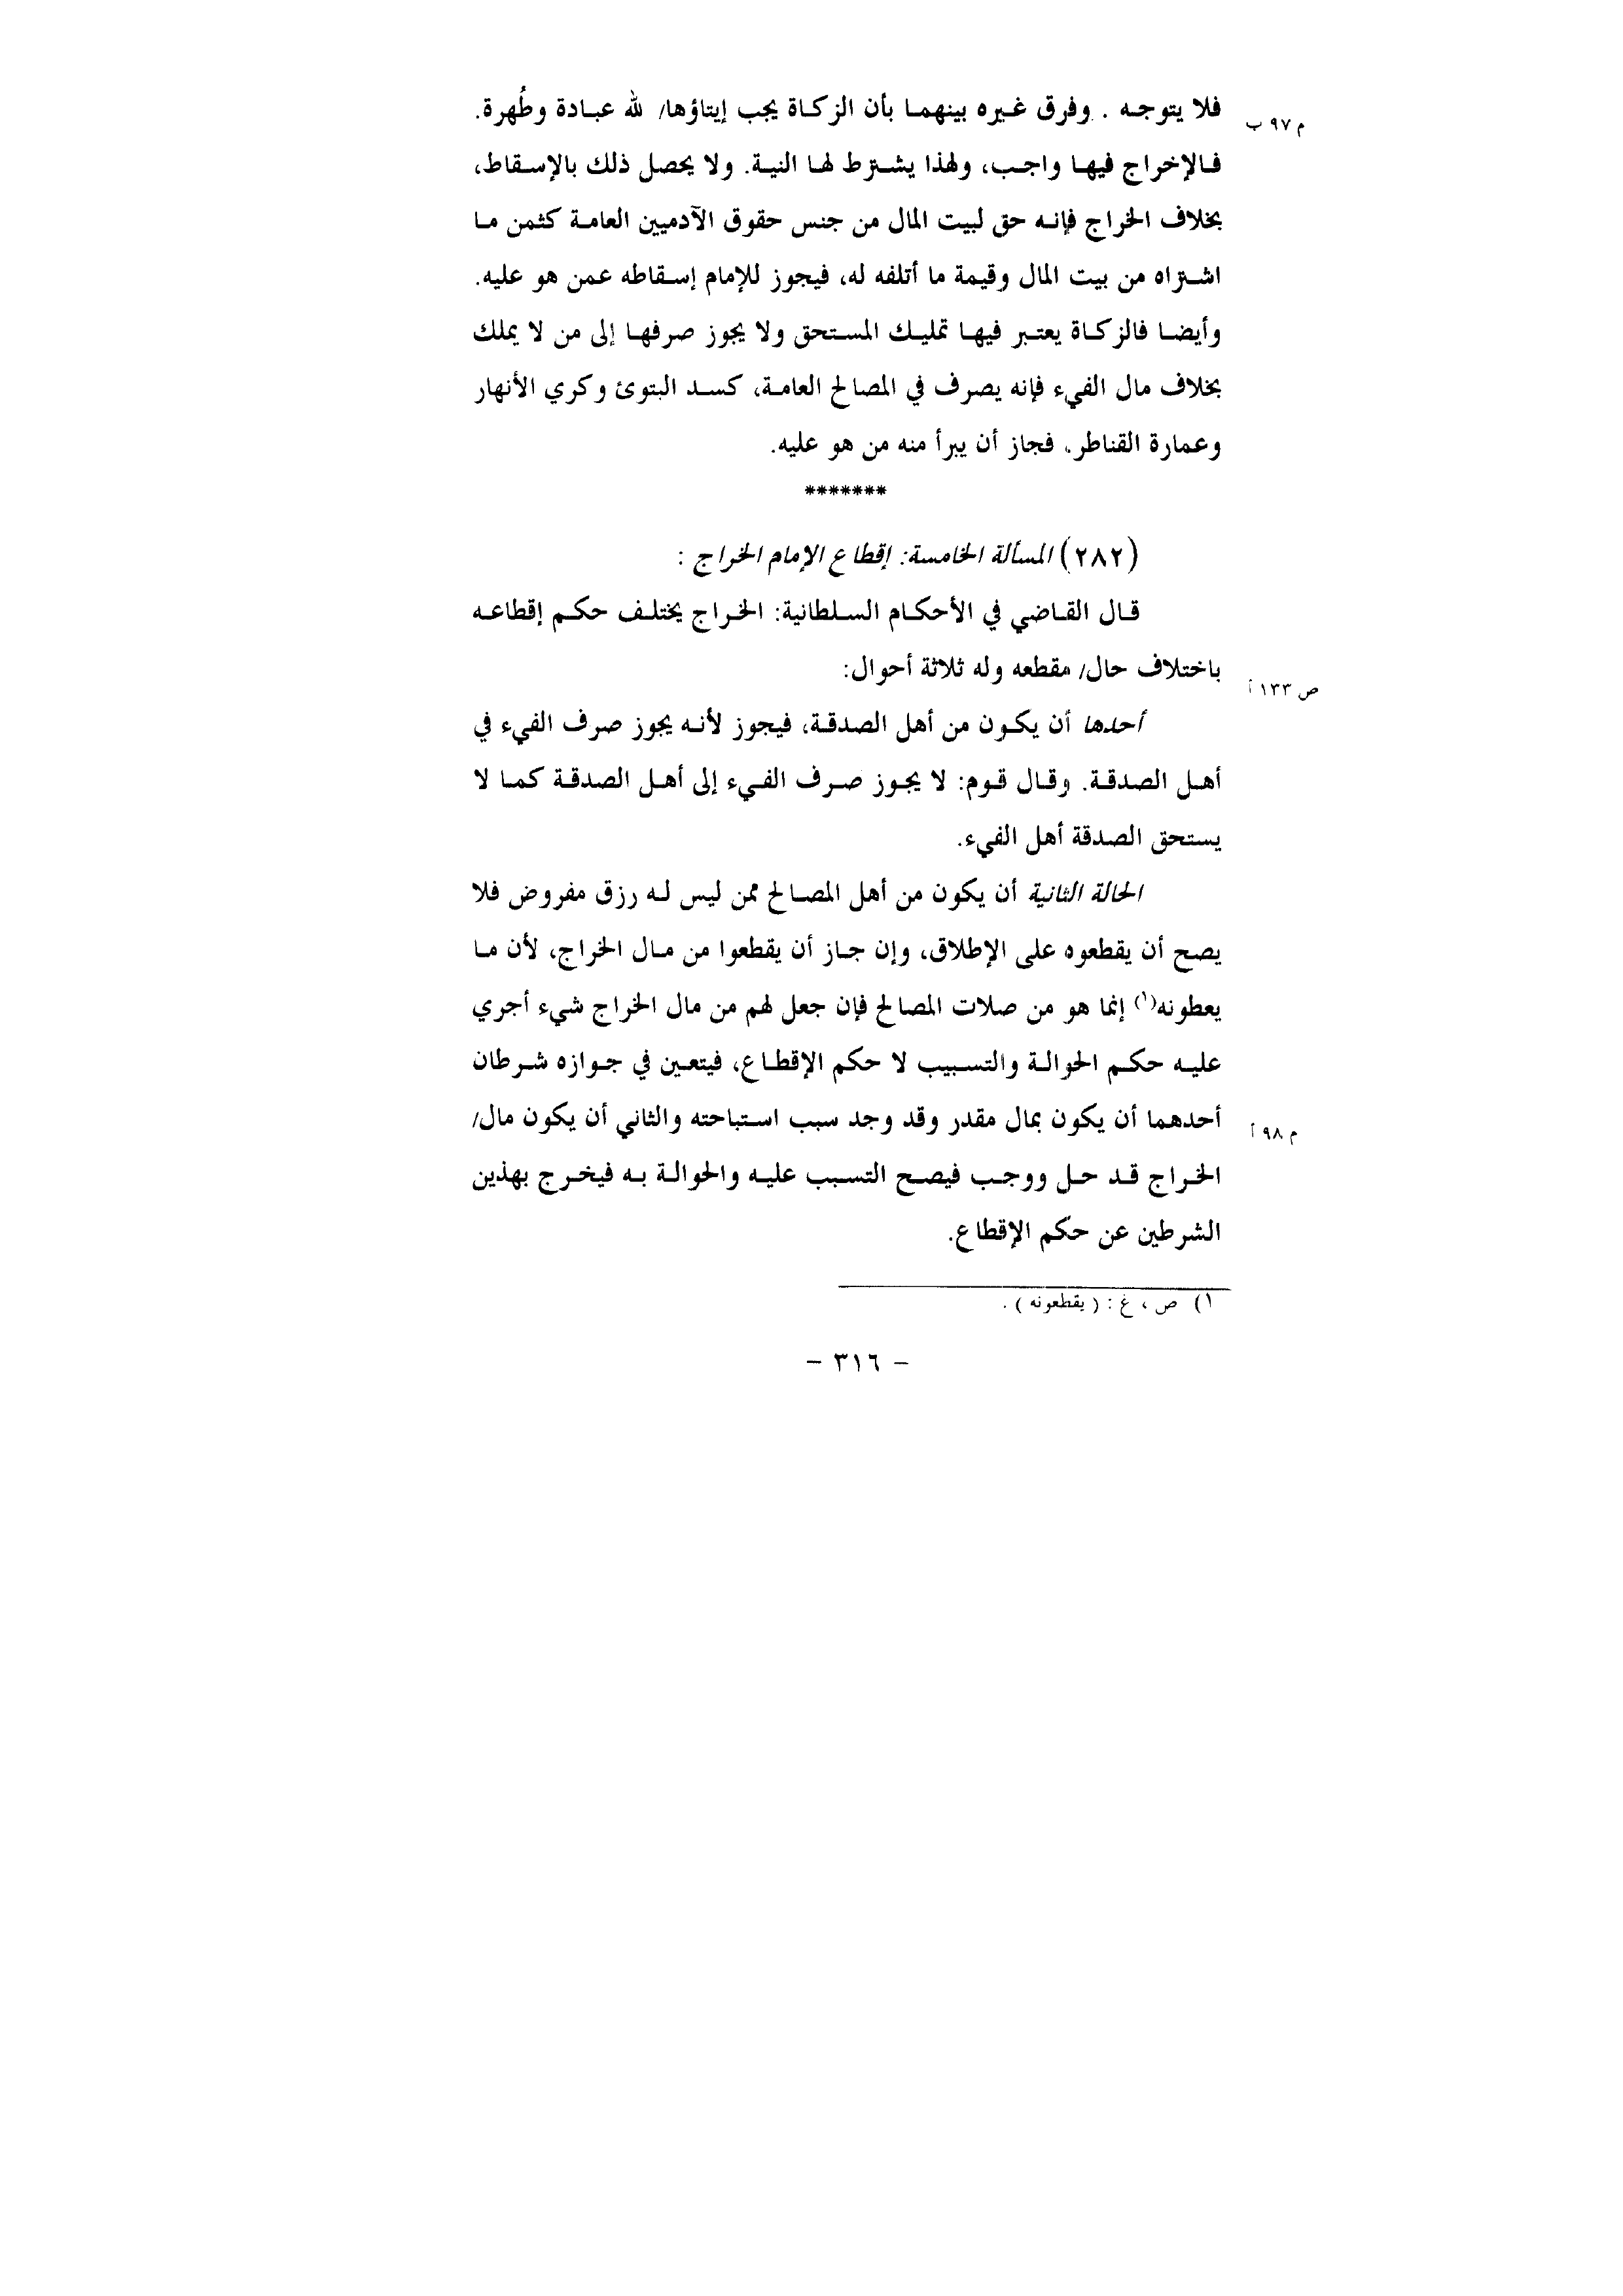 فلا يتوجه . وفرق غيره بينهما بأن الزكاة يجب إيتاؤها/ لله عبادة وطُهرة.
م ٩٧ ب
فالإخراج فيها واجب، ولهذا يشترط لها النية. ولا يحصل ذلك بالإسقاط،
بخلاف الخراج فإنه حق لبيت المال من جنس حقوق الآدميين العامة كثمن ما
اشتراه من بيت المال وقيمة ما أتلفه له، فيجوز للإمام إسقاطه عمن هو عليه.
وأيضا فالزكاة يعتبر فيها تمليك المستحق ولا يجوز صرفها إلى من لا يملك
بخلاف مال الفيء فإنه يصرف في المصالح العامة، كسد البتوئ وكري الأنهار
وعمارة القناطر، فجاز أن يبرأ منه من هو عليه.
*******
(٢٨٢) المسألة الخامسة: إقطاع الإمام الخراج :
قال القاضي في الأحكام السلطانية: الخراج يختلف حكم إقطاعه
باختلاف حال/ مقطعه وله ثلاثة أحوال:
ص ١٣٣ أ
أحدها أن يكون من أهل الصدقة، فيجوز لأنه يجوز صرف الفيء في
أهل الصدقة. وقال قوم: لا يجوز صرف الفيء إلى أهل الصدقة كما لا
يستحق الصدقة أهل الفيء.
الحالة الثانية أن يكون من أهل المصالح ممن ليس له رزق مفروض فلا
يصح أن يقطعوه على الإطلاق، وإن جاز أن يقطعوا من مال الخراج، لأن ما
يعطونه(١) إنما هو من صلات المصالح فإن جعل لهم من مال الخراج شيء أجري
عليه حكم الحوالة والتسبيب لا حكم الإقطاع، فيتعين في جوازه شرطان
أحدهما أن يكون بمال مقدر وقد وجد سبب استباحته والثاني أن يكون مال/
م ٩٨ أ
الخراج قد حل ووجب فيصح التسبب عليه والحوالة به فيخرج بهذين
الشرطين عن حكم الإقطاع.
١) ص ، غ : ( يقطعونه ) .
- ٣١٦ -